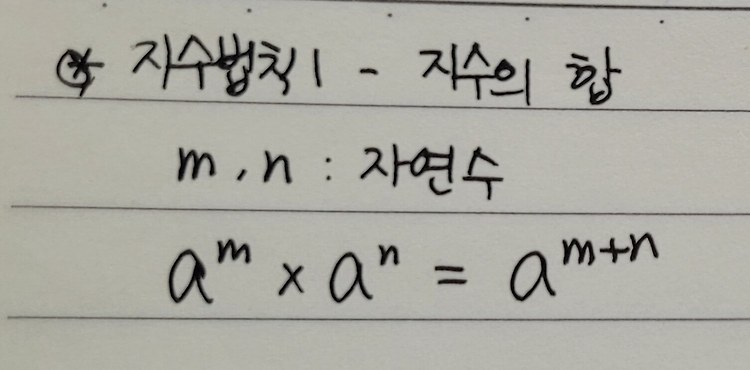 ⊛ 지수법칙 1 - 지수의 합
m, n : 자연수
aᵐ × aⁿ = aᵐ⁺ⁿ